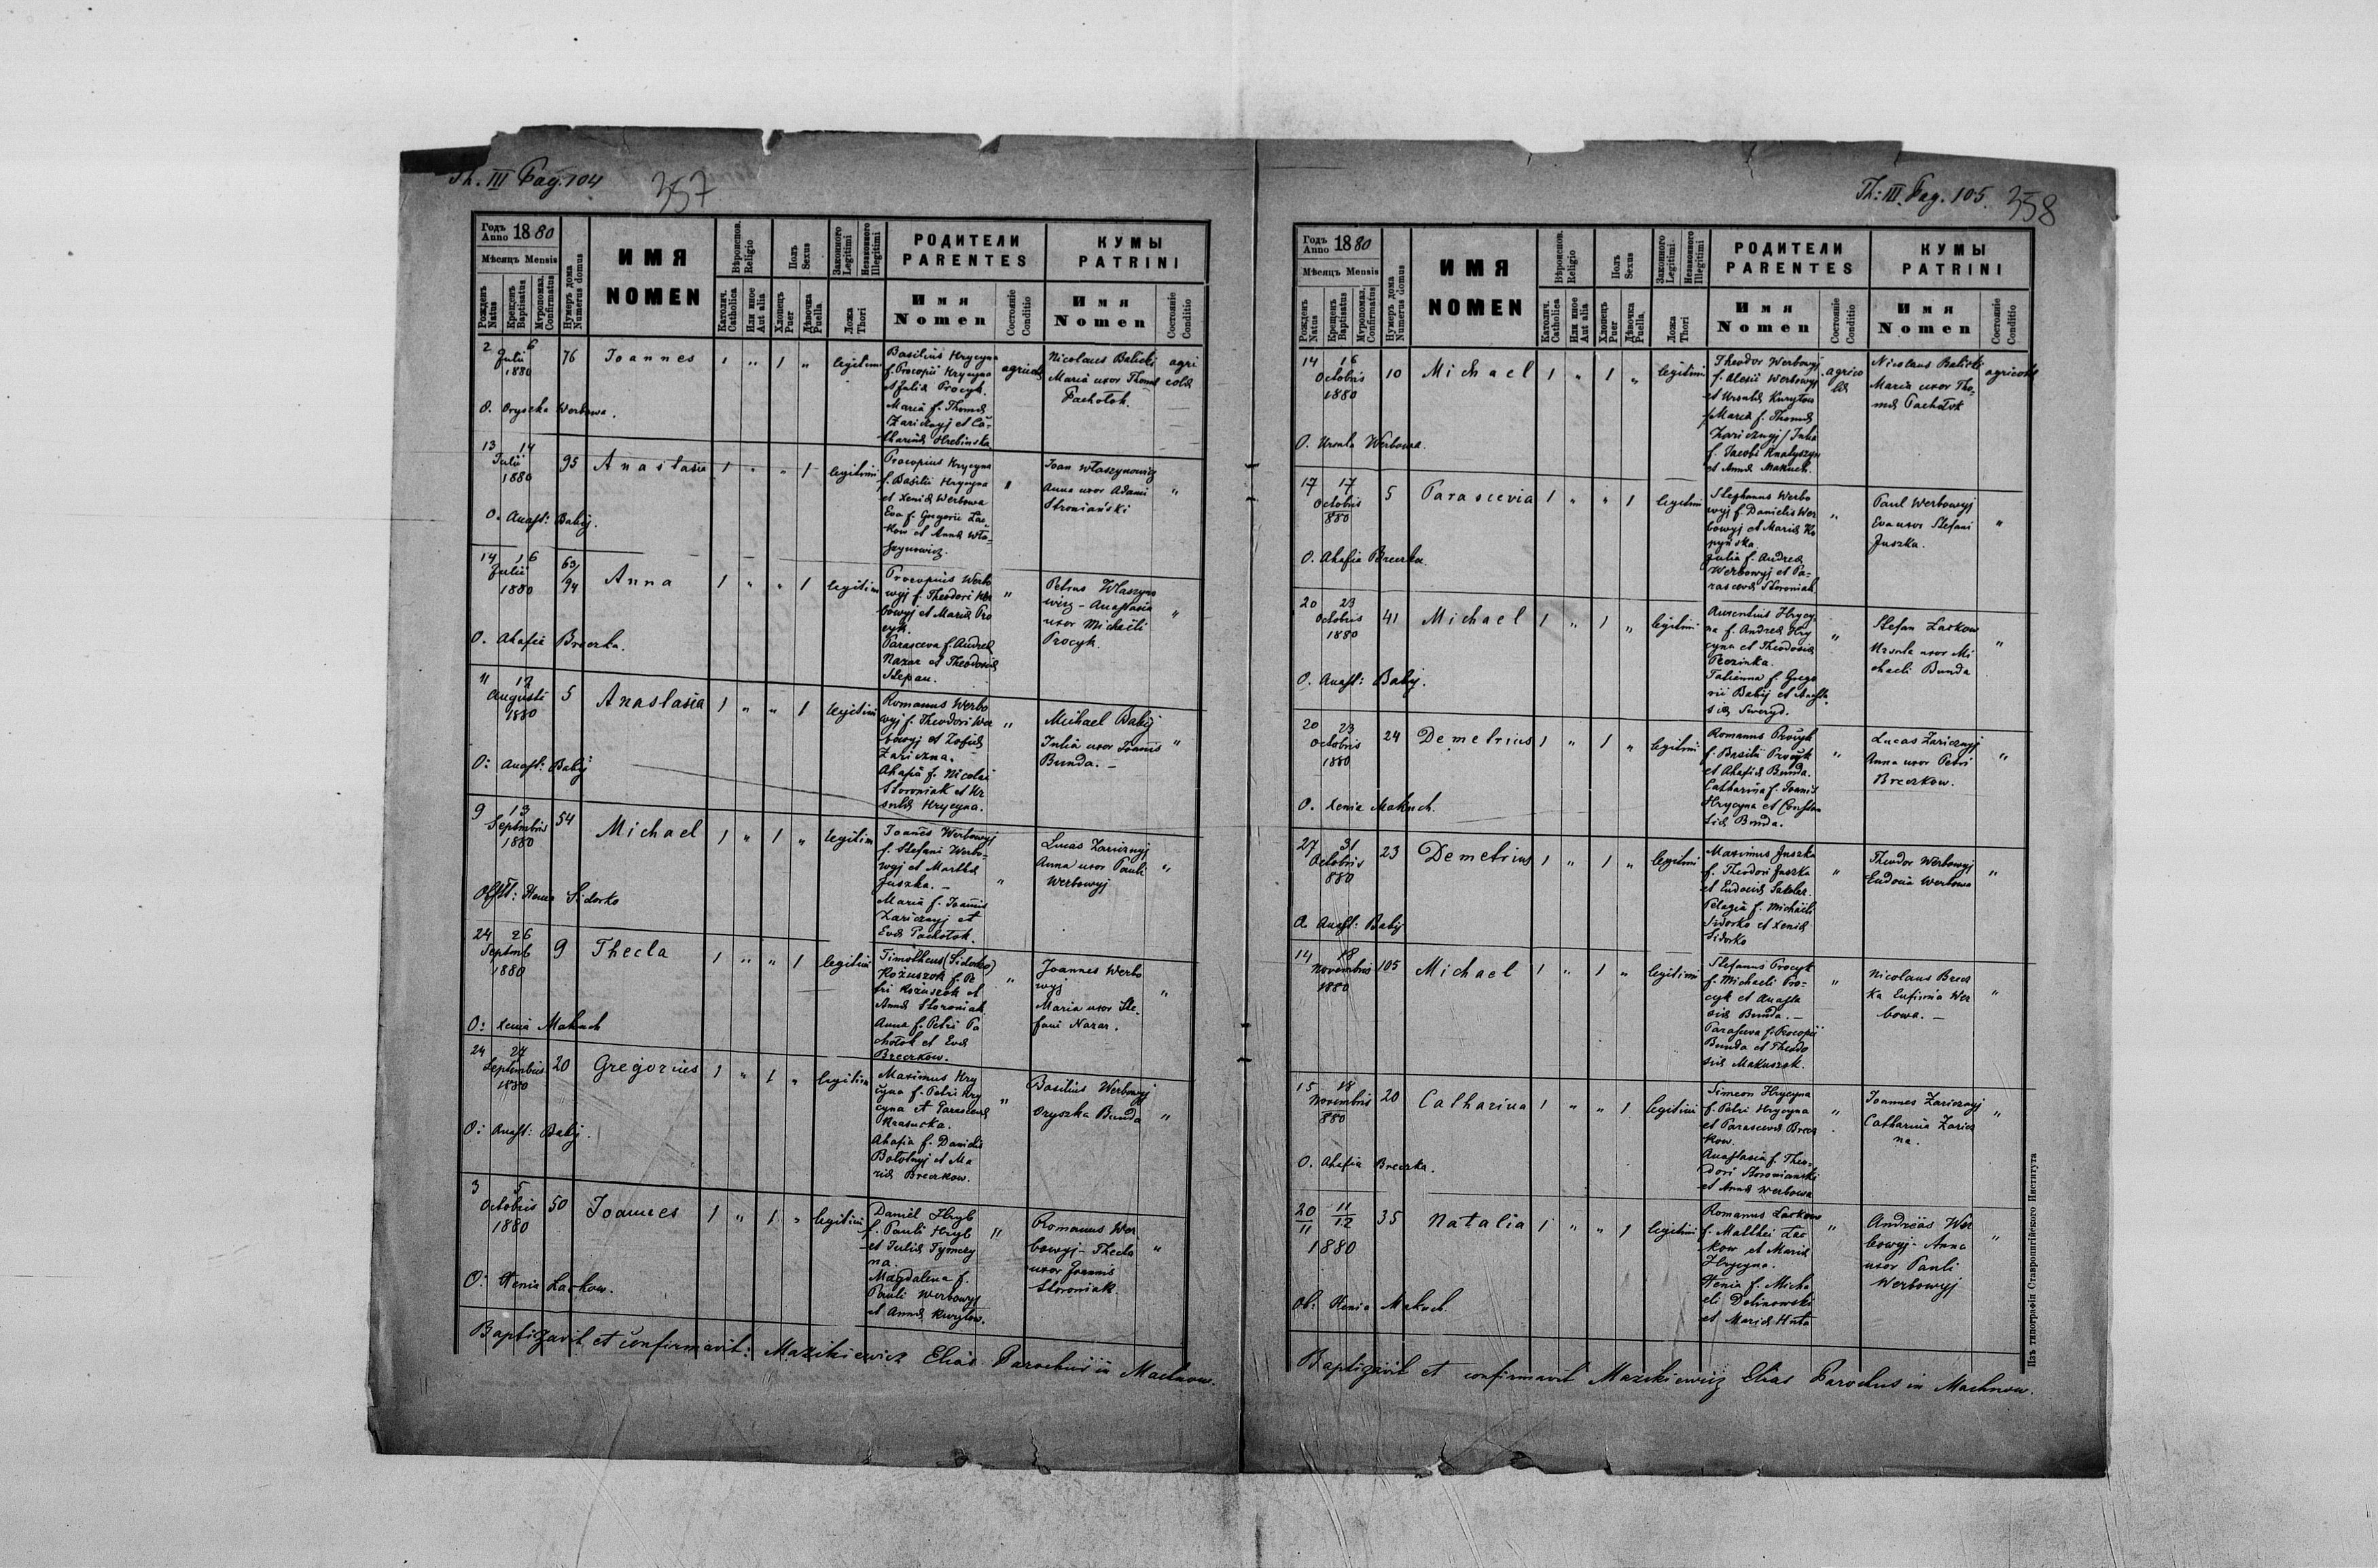 Th. III Pag. 104
357
Годъ Anno 1880
Мѣсяцъ Mensis
Рожденъ Natus
Крещенъ Baptisatus
Мѵропомаз. Confirmatus
Нумеръ дома Numerus domus
ИМЯ NOMEN
Вѣроиспов. Religio
Католич. Catholica
Или иное Aut alia
Полъ Sexus
Хлопецъ Puer
Дѣвочка Puella
Законного Legitimi
Незаконного Illegitimi
Ложа Thori
РОДИТЕЛИ PARENTES
Имя Nomen
Состояніе Conditio
КУМЫ PATRINI
Имя Nomen
Состояніе Conditio
2 6 Julii 1880
76
Joannes
1 " 1 "
legitimi
Basilius Hrycyna
f. Procopii Hrycyna
et Julia Procyk.
Maria f. Thoma
Zaricznyj et Ca-
tharina Hrebinska
agricola
Nicolaus Balicki
Maria uxor Thoma
Pachotok.
agri
cola
O. Oryszka Werbowa.
13 14 Julii 1880
95
Anastasia
1 " " 1
legitimi
Procopius Hrycyna
f. Basilii Hrycyna
et Xenia Werbowa
Eva f. Gregorii Lac-
kow et Anna Wła-
szynowicz.
"
Joan Własynowicz
Anna uxor Adami
Stroniański
"
O. Anast: Babij.
14 16 Julii 1880
63/94
Anna
1 " " 1
legitimi
Procopius Werbo
wyj f. Theodori Wer
bowyj et Maria Pro
cyk.
Parasceva f. Andrea
Nazar et Theodosia
Stepan.
"
Petrus Własyno
wicz - Anastasia
uxor Michaeli
Procyk.
"
O. Ahafia Breczka.
11 12 Augusti 1880
5
Anastasia
1 " " 1
legitimi
Romanus Werbo
wyj f. Theodori Wer
bowyj et Zofia
Zariczna.
Ahafia f. Nicolai
Storoniak et Ur
sula Hrycyna.
"
Michael Babij
Julia uxor Joannis
Bunda. -
"
O: Anast: Babij
9 13 Septembris 1880
54
Michael
1 " 1 "
legitimi
Joannes Werbowyj
f. Stefani Werbo-
wyj et Martha
Juszka. -
Maria f. Joannis
Zaricznyj et
Eva Pachotok.
"
Lucas Zaricznyj
Anna uxor Pauli
Werbowyj
"
Obst: Xenia Sidorko
24 26 Septemb 1880
9
Thecla
1 " " 1
legitimi
Timotheus (Sidorko)
Kożuszok f. Pe
tri Kożuszok et
Anna Storoniak
Anna f. Petri Pa
chotok et Eva
Breczkow.
"
Joannes Werbo
wyj
Maria uxor Ste-
fani Nazar.
"
O: Xenia Makuch
24 27 Septembris 1880
20
Gregorius
1 " 1 "
legitimi
Maximus Hry
cyna f. Petri Hry
cyna et Parasceva
Krasucka.
Ahafia f. Danielis
Bołotnyj et Ma
ria Breczkow.
"
Basilius Werbowyj
Oryszka Bunda
"
O: Anast: Babij.
3 5 Octobris 1880
50
Joannes
1 " 1 "
legitimi
Daniel Hryb
f. Pauli Hryb
et Julia Tymczy
na.
Magdalena f.
Pauli Werbowyj
et Anna Kurytow.
"
Romanus Wer
bowyj - Thecla
uxor Joannis
Storoniak.
"
O: Xenia Lackow.
Baptizavit et confirmavit: Mazikiewicz Elias Parochus in Machnow.
Th: III. Pag. 105.
358
Годъ Anno 1880
Мѣсяцъ Mensis
Рожденъ Natus
Крещенъ Baptisatus
Мѵропомаз. Confirmatus
Нумеръ дома Numerus domus
ИМЯ NOMEN
Вѣроиспов. Religio
Католич. Catholica
Или иное Aut alia
Полъ Sexus
Хлопецъ Puer
Дѣвочка Puella.
Законного Legitimi.
Незаконного Illegitimi
Ложа Thori
РОДИТЕЛИ PARENTES
Имя Nomen
Состояніе Conditio
КУМЫ PATRINI
Имя Nomen
Состояніе Conditio
14 16 Octobris 1880
10
Michael
1 " 1 "
legitimi
Theodor Werbowyj
f. Alexii Werbowyj
et Ursula Kurytow
/Maria f. Thoma
Zaricznyj/ Julia
f. Jacobi Knatyszyn
et Anna Makuch.
agrico
la
Nicolaus Balicki
Maria uxor Tho-
ma Pachotok
agricola
O. Ursula Werbowa.
17 17 Octobris 880
5
Parascevia
1 " " 1
legitimi
Stephanus Werbo
wyj f. Danielis Wer
bowyj et Maria Ko
pyńska.
Julia f. Andrea
Werbowyj et Pa-
rasceva Storoniak.
"
Paul Werbowyj
Eva uxor Stefani
Juszka.
"
O. Ahafia Breczka.
20 23 Octobris 1880
41
Michael
1 " 1 "
legitimi
Auxentius Hrycy-
na f. Andrea Hry
cyna et Theodosia
Rezinka.
Tatianna f. Grego
rii Babij et Anasta
sia Sweryd.
"
Stefan Lackow
Ursula uxor Mi
chaeli Bunda
"
O. Anast: Babij.
20 23 Octobris 1880
24
Demetrius
1 " 1 "
legitimi
Romanus Procyk
f. Basilii Procyk
et Ahafia Bunda.
Catharina f. Joannis
Hrycyna et Consta
tia Bunda.
"
Lucas Zaricznyj
Anna uxor Petri
Breczkow.
"
O. Xenia Makuch.
27 31 Octobris 880
23
Demetrius
1 " 1 "
legitimi
Maximus Juszka
f. Theodori Juszka
et Eudocia Satsler.
Pelagia f. Michaeli
Sidorko et Xenia
Sidorko
"
Theodor Werbowyj
Eudocia Werbowa
"
O. Anast: Babij
14 18 Novembris 1880
105
Michael
1 " 1 "
legitimi
Stefanus Procyk
f. Michaeli Pro-
cyk et Anasta
sia Bunda. -
Parasceva f. Procopii
Bunda et Theodo
sia Makuszak.
"
Nicolaus Brecz
ka Eufimia Wer
bowa. -
"
15 18 Novembris 880
20
Catharina
1 " " 1
legitimi
Simeon Hrycyna
f. Petri Hrycyna
et Parasceva Brecz
kow.
Anastasia f. Theo-
dori Storonianski
et Anna Werbowa
"
Joannes Zaricznyj
Catharina Zaricz
na.
"
O. Ahafia Breczka.
20/II 11/12 1880
35
Natalia
1 " " 1
legitimi
Romanus Lackow
f. Matthei Lac-
kow et Maria
Hrycyna.
Xenia f. Micha
eli Dolinowski
et Maria Huta
"
Andreas Wer
bowyj - Anna
uxor Pauli
Werbowyj
"
Ob: Xenia Makuch.
Baptizavit et confirmavit Mazikiewicz Elias Parochus in Machnow.
Изъ типографіи Ставропигійского Института